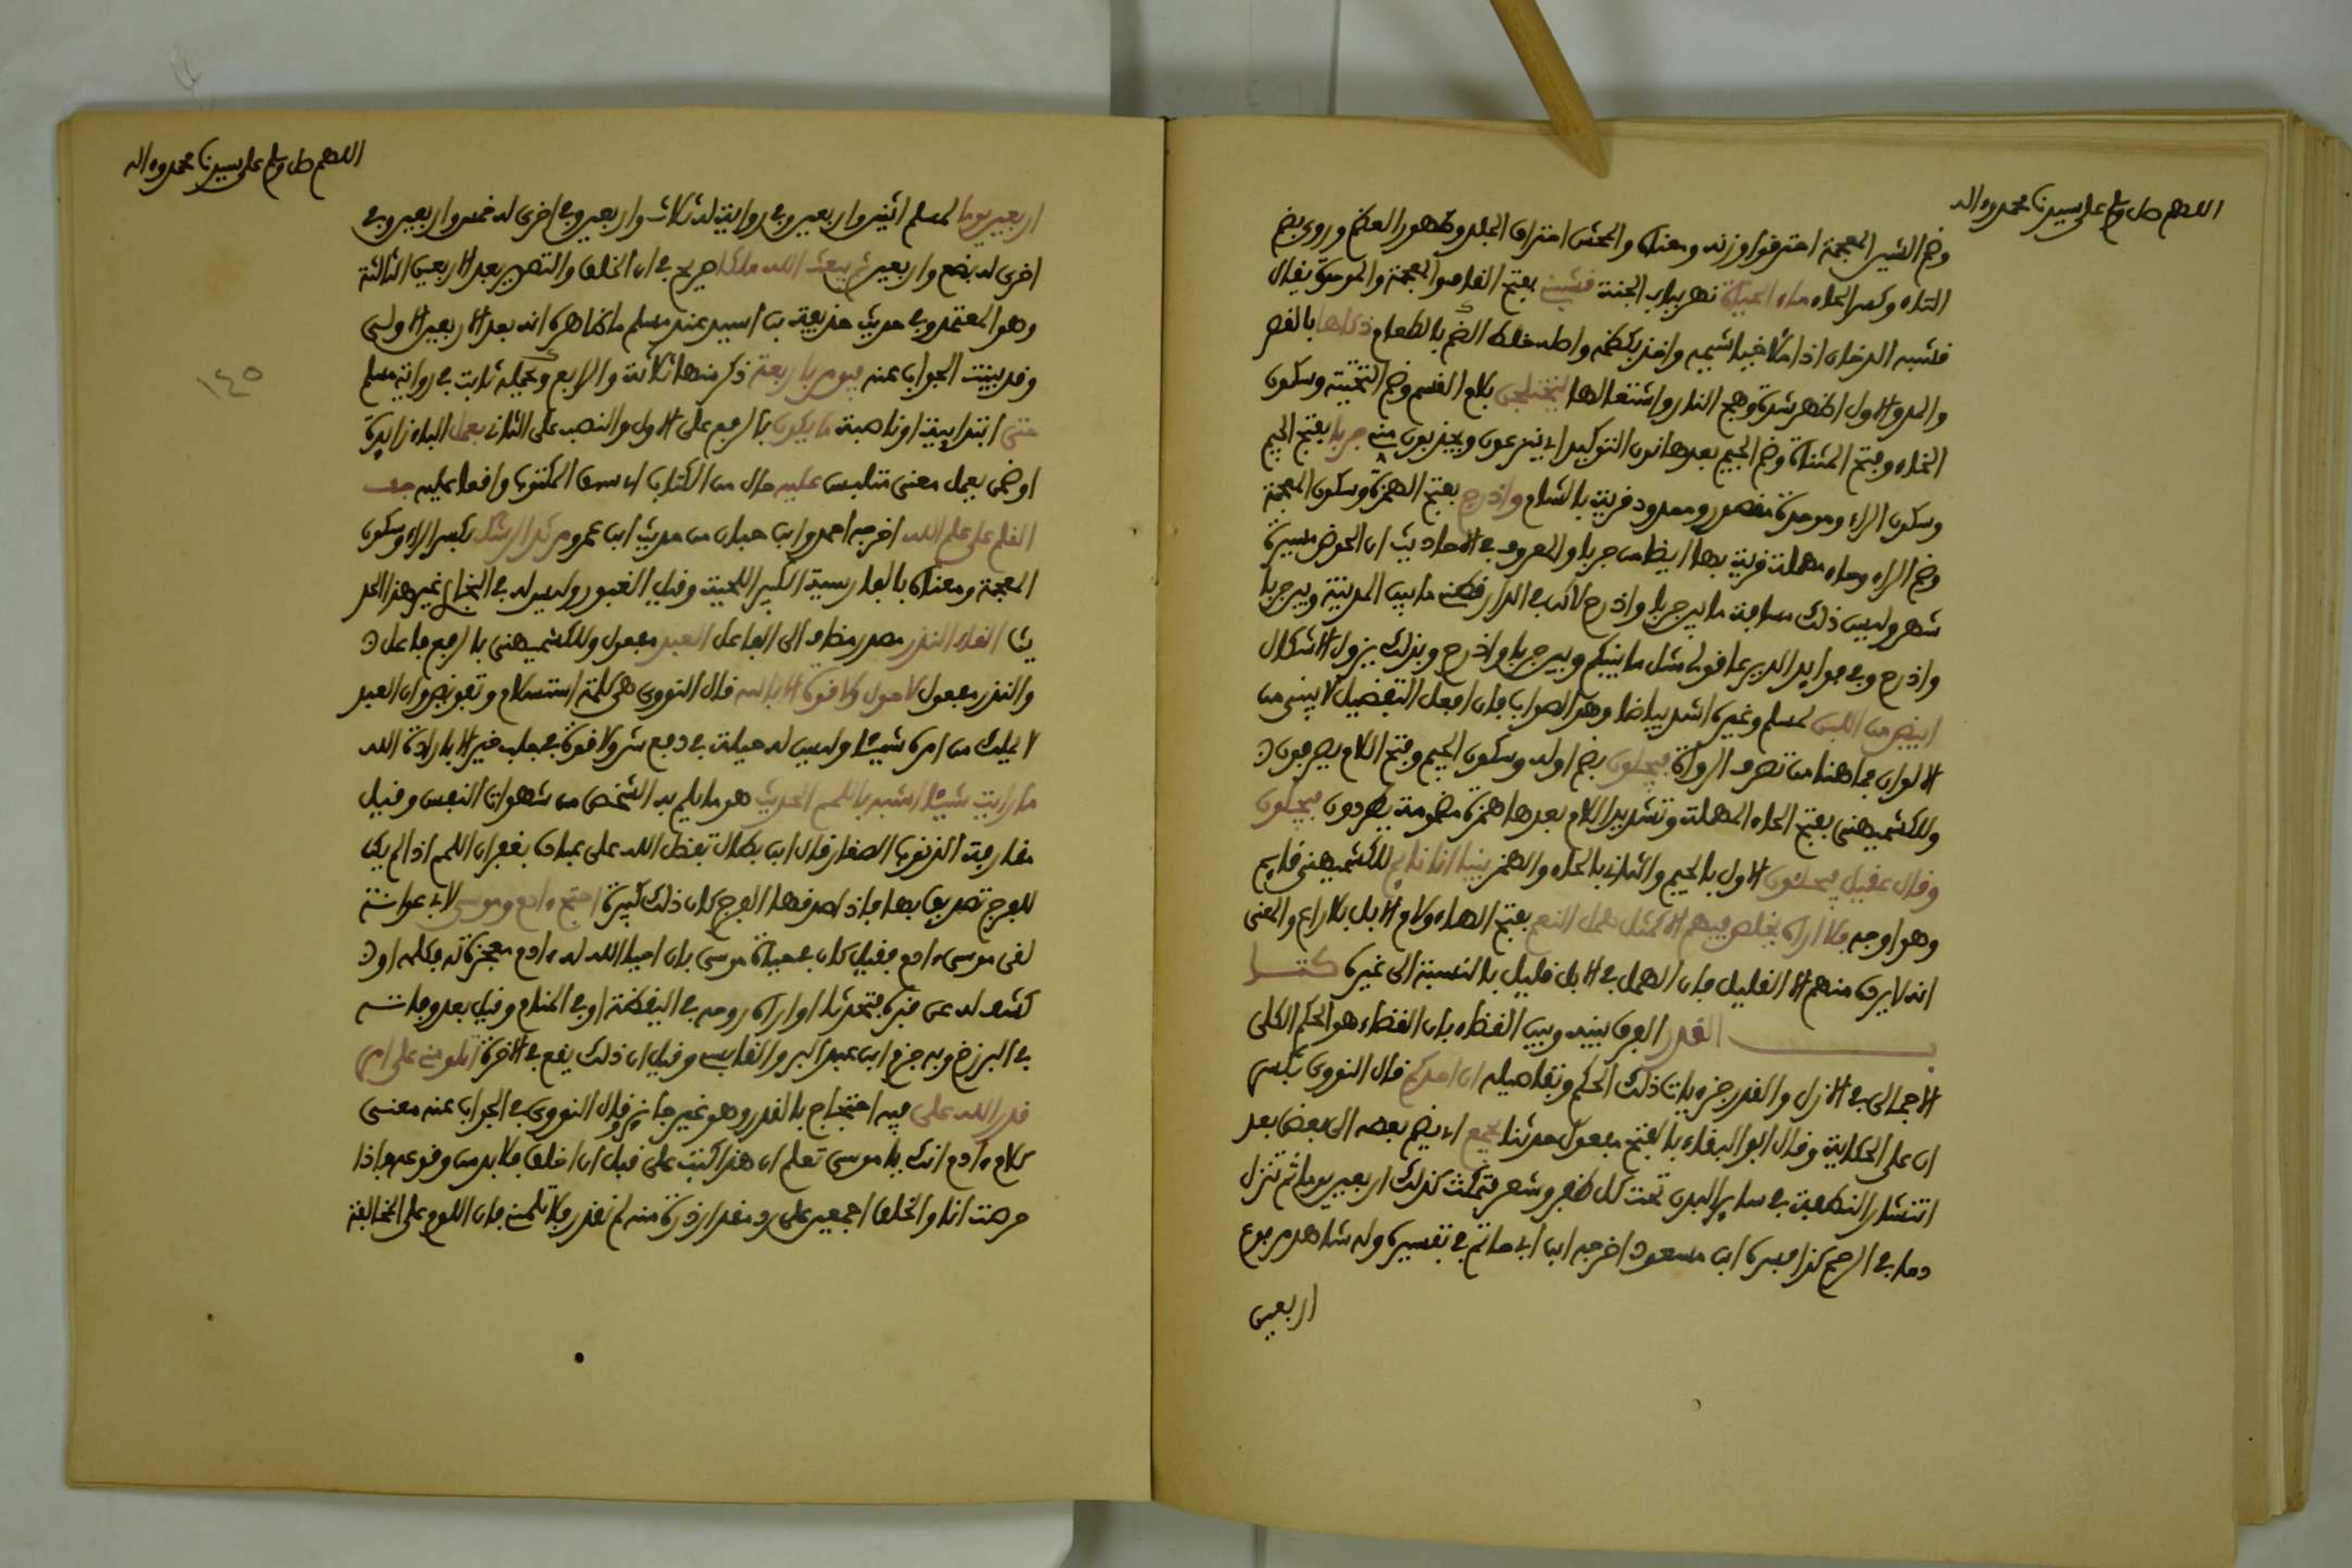 اللهم صل وسلم على سيدنا محمد وءاله
وضم الشين المعجمة احترقوا وزنه ومعناه والمحش احتراق الجلد وظهور العظم وروي بضم
التاء وكسر الحاء ماء الحياة نهر بباب الجنة قشبني بفتح القاف والمعجمة والموحدة يقال
قشبه الدخان اذا ملا خياشيمه واخذ بكظمه واصله خلط السم بالطعام ذكاها بالقصر
والمد والاول اظهر شدة وهج النار واشتعالها ليختلجن بلام القسم وضم التحتية وسكون
الخاء وفتح المثناة وضم الجيم بعدها نون التوكيد اي ينزعون ويجذبون منه جربا بفتح الجيم
وسكون الراء وموحدة مقصور وممدود قرية بالشام واذرح بفتح الهمزة وسكون المعجمة
وضم الراء وحاء مهملة قرية بها ايضا من جربا والمعروف في الاحاديث ان الحوض مسيرة
شهر وليس ذلك مسافة ما بين جربا واذرح لاكن في الدارقطني ما بين المدينة وبين جربا
واذرح وفي فوايد الديرعاقولي مثل ما بينكم وبين جربا واذرح وبذلك يزول الاشكال
ابيض من اللبن لمسلم وغيره اشد بياضا وهو الصواب فان افعل التفضيل لا يبنى من
الالوان فما هنا من تصرف الرواة فيجلون بضم اوله وسكون الجيم وفتح اللام يصرفون
وللكشميهني بفتح الحاء المهملة وتشديد اللام بعدها همزة مضمومة يطردون فيجلون
وقال عقيل فيحلئون الاول بالجيم والثاني بالحاء والهمز بينا انا نايم للكشميهني قايم
وهو اوجه فلا اراه يخلص فيهم الا مثل همل النعم بفتح الهاء ولام الابل بلا راع والمعنى
انه لا يرد منهم الا القليل فان الهمل في الابل قليل بالنسبة الى غيره كتا
ب القدر الفرق بينه وبين القضاء بان القضاء هو الحكم الكلي
الاجمالي في الازل والقدر جزءيات ذلك الحكم وتفاصيله ان احدكم قال النووي بكسر
ان على الحكاية وقال ابو البقاء بالفتح مفعول حدثنا يجمع اي يضم بعضه الى بعض بعد
انتشار النطفة في ساير البدن تحت كل ظفر وشعر فتمكث كذلك اربعين يوما ثم تنزل
دما في الرحم كذا فسره ابن مسعود اخرجه ابن ابي حاتم في تفسيره وله شاهد مرفوع
اربعين
اللهم صل وسلم على سيدنا محمد وءاله
اربعين يوما لمسلم اثنين واربعين وفي رواية له ثلاث واربعين وفي اخرى له خمس واربعين وفي
اخرى له بضع واربعين ثم يبعث الله ملكا صريح في ان الخلق والتصوير بعد الاربعين الثالثة
وهو المعتمد وفي حديث حذيفة بن اسيد عند مسلم ما ظاهره انه بعد الاربعين الاولى
وقد بينت الجواب عنه فيومر باربعة ذكر منها ثلاثة والرابع وعمله ثابت في رواية مسلم
حتى ابتدايية او ناصبة ما يكون بالرفع على الاول والنصب على الثاني يعمل الباء زايدة
او ضمن يعمل معنى يتلبس عليه حال من الكتاب اي سبق المكتوب واقعا عليه جف
القلم على علم الله اخرجه احمد وابن حبان من حديث ابن عمرو مرثد الرشك بكسر الراء وسكون
المعجمة ومعناه بالفارسية الكبير اللحية وقيل الغيور وليس له في البخاري غير هذا الحد
يث القاء النذر مصدر مضاف الى الفاعل العبد مفعول وللكشميهني بالرفع فاعل
والنذر مفعول لا حول ولا قوة الا بالله قال النووي هي كلمة استسلام وتفويض وان العبد
لا يملك من امره شيئا وليس له حيلة في دفع شر ولا قوة في جلب خير الا بارادة الله
ما رايت شيئا اشبه باللمم الحديث هو ما يلم به الشخص من شهوات النفس وقيل
مقارفة الذنوب الصغار قال ابن بطال تفضل الله على عباده بغفران اللمم اذا لم يكن
للفرج تصديق بها فاذا صدقها الفرج كان ذلك كبيرة احتج ءادم وموسى لابي عوانة
لقي موسى ءادم فقيل كان في حياة موسى بان احيا الله له ءادم معجزة له فكلمه او
كشف له عن قبره فتحدثا او اراه روحه في اليقظة او في المنام وقيل بعد وفاته
في البرزخ وبه جزم ابن عبد البر والقابسي وقيل ان ذلك يقع في الاخرة اتلومني على امر
قدر الله علي فيه احتجاج بالقدر وهو غير جايز قال النووي في الجواب عنه معنى
كلام ءادم انك يا موسى تعلم ان هذا كتب علي قبل ان اخلق فلا بد من وقوعه واذا
حرصت انا والخلق اجمعين على رد مقدار ذرة منه لم نقدر فلا تلمني فان اللوم على المخالفة
١٤٥